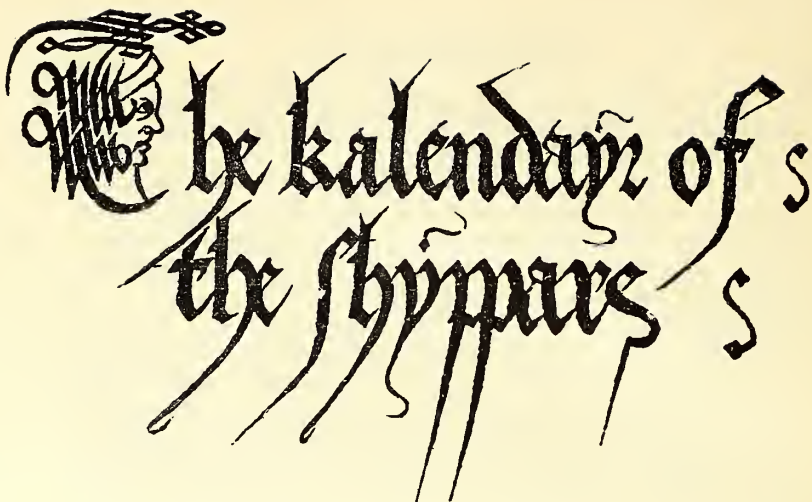 The kalendayr of
the shyppars